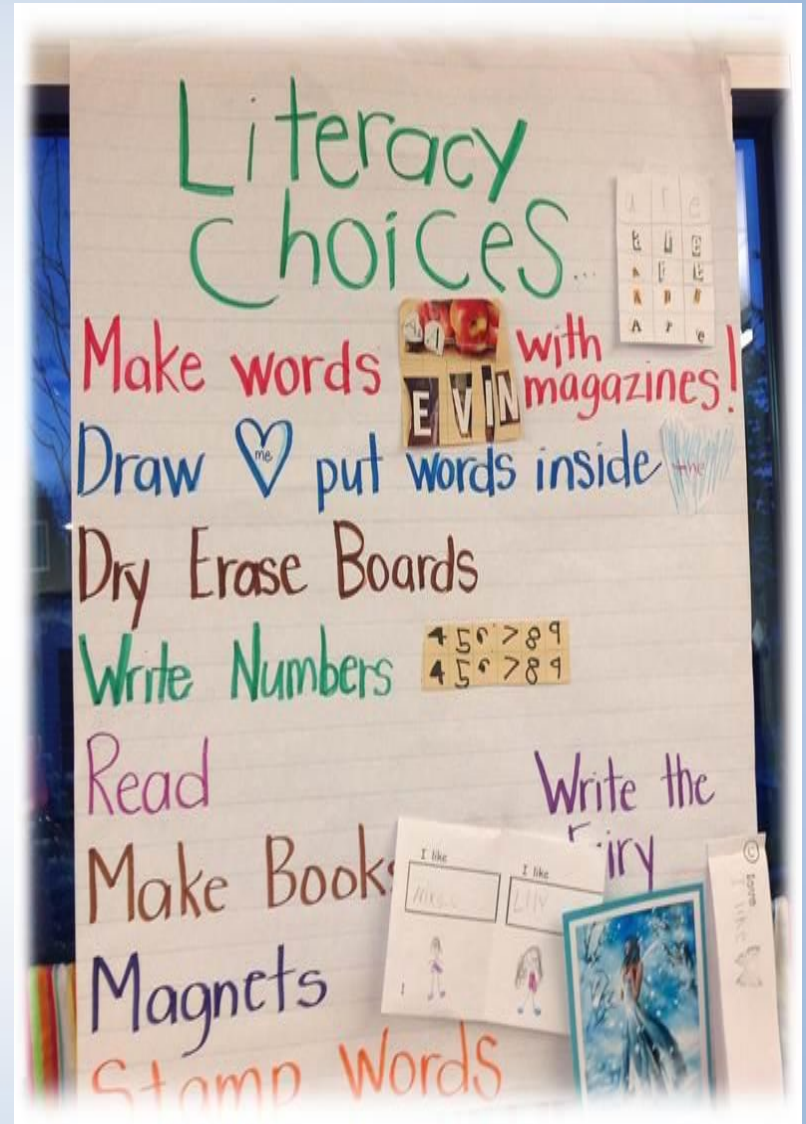 Literacy
Choices...
Make words with magazines!
E V I N
Draw me put words inside the
Dry Erase Boards
Write Numbers
4 5 6 7 8 9
4 5 6 7 8 9
Read
Write the
Make Books
I like
I like
Magnets
Stamp Words